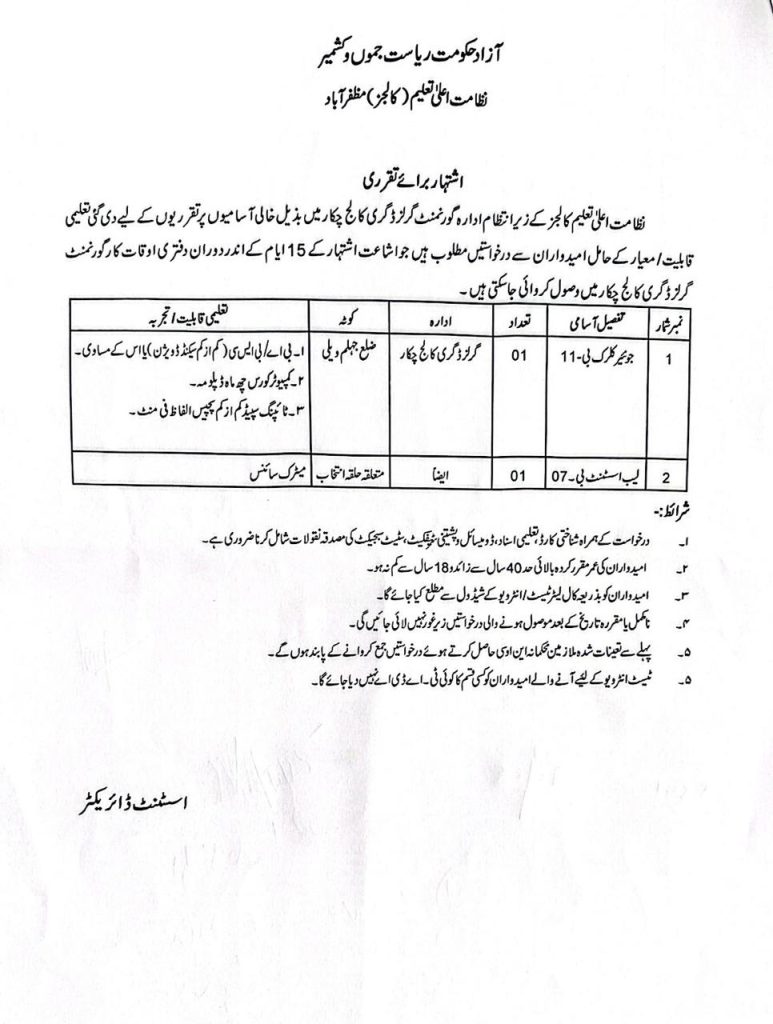 آزاد حکومت ریاست جموں و کشمیر
نظامت اعلیٰ تعلیم (کالجز) مظفرآباد
اشتہار برائے تقرری
نظامت اعلیٰ تعلیم کالجز کے زیر انتظام ادارہ گورنمنٹ گرلز ڈگری کالج چکار میں بذیل خالی آسامیوں پر تقرریوں کے لیے دی گئی تعلیمی
قابلیت/معیار کے حامل امیدواران سے درخواستیں مطلوب ہیں جو اشاعت اشتہار کے 15 ایام کے اندر دوران دفتری اوقات کار گورنمنٹ
گرلز ڈگری کالج چکار میں وصول کروائی جاسکتی ہیں۔
نمبر شمار تفصیل آسامی تعداد ادارہ کوٹہ تعلیمی قابلیت/تجربہ
1 جونیئر کلرک بی-11 01 گرلز ڈگری کالج چکار ضلع جہلم ویلی ۱۔ بی اے/بی ایس سی (کم از کم سیکنڈ ڈویژن) یا اس کے مساوی۔
۲۔ کمپیوٹر کورس چھ ماہ ڈپلومہ۔
۳۔ ٹائپنگ سپیڈ کم از کم پچیس الفاظ فی منٹ۔
2 لیب اسسٹنٹ بی۔07 01 ایضاً متعلقہ حلقہ انتخاب میٹرک سائنس
شرائط:-
۱۔ درخواست کے ہمراہ شناختی کارڈ، تعلیمی اسناد، ڈومیسائل و پشتنی سرٹیفکیٹ، سٹیٹ سبجیکٹ کی مصدقہ نقولات شامل کرنا ضروری ہے۔
۲۔ امیدواران کی عمر مقرر کردہ بالائی حد 40 سال سے زائد و 18 سال سے کم نہ ہو۔
۳۔ امیدواران کو بذریعہ کال لیٹر ٹیسٹ/انٹرویو کے شیڈول سے مطلع کیا جائے گا۔
۴۔ نامکمل یا مقررہ تاریخ کے بعد موصول ہونے والی درخواستیں زیر غور نہیں لائی جائیں گی۔
۵۔ پہلے سے تعینات شدہ ملازمین محکمانہ این او سی حاصل کرتے ہوئے درخواستیں جمع کروانے کے پابند ہوں گے۔
۵۔ ٹیسٹ انٹرویو کے لیے آنے والے امیدواران کو کسی قسم کا کوئی ٹی۔اے ڈی اے نہیں دیا جائے گا۔
اسسٹنٹ ڈائریکٹر